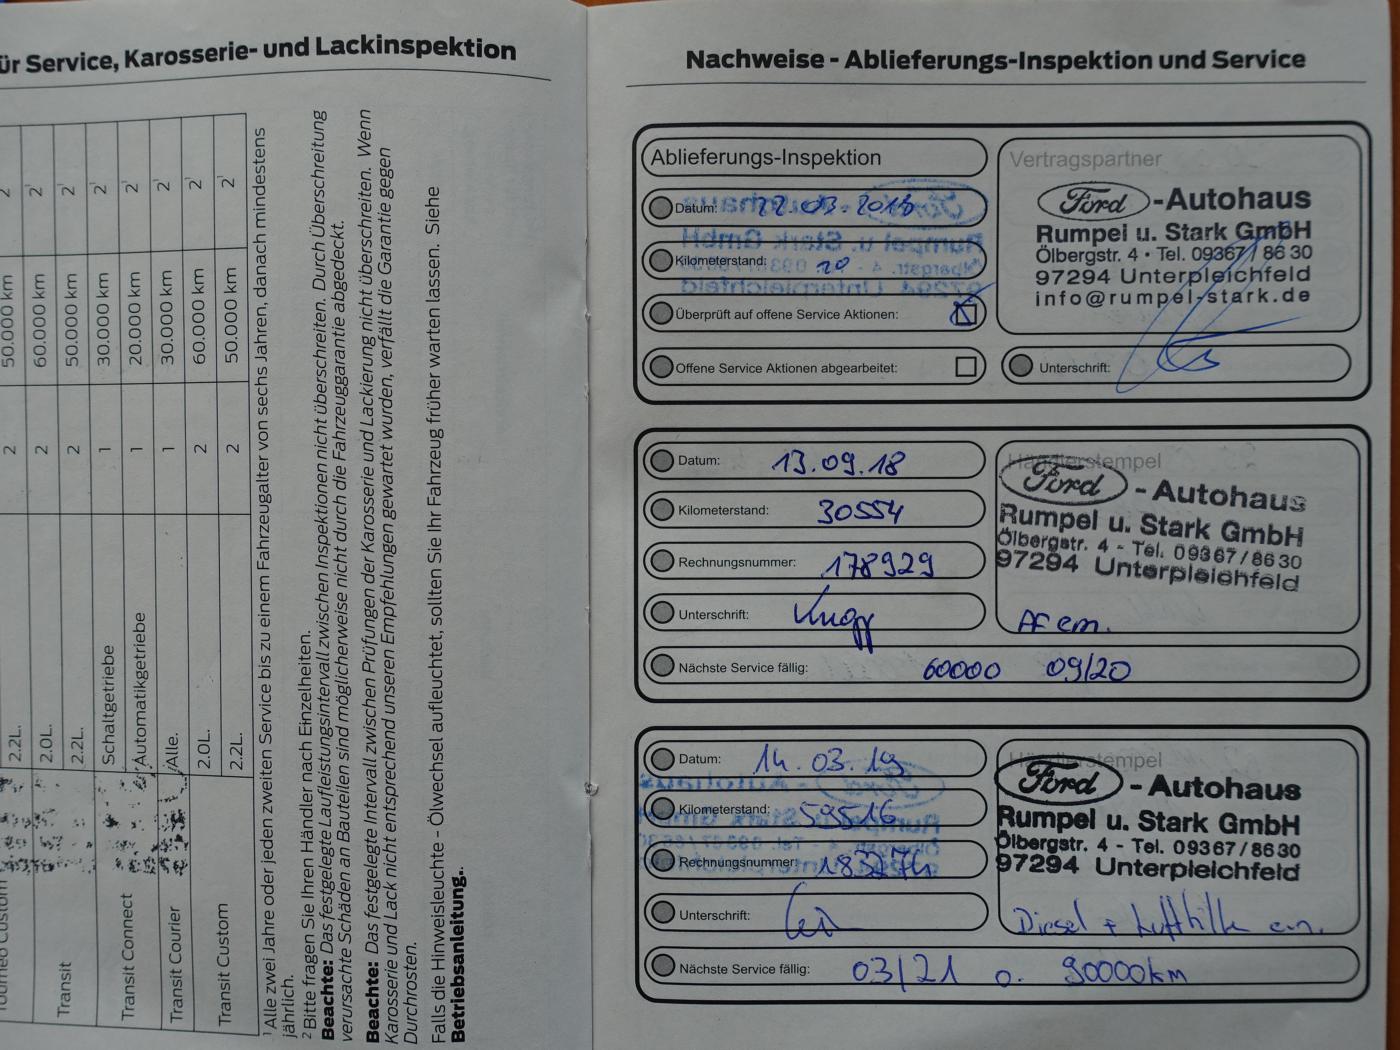 ür Service, Karosserie- und Lackinspektion
50.000 km 2 2¹
2.2L. 2
2.0L. 2 60.000 km 2¹
Transit 2.2L. 2 50.000 km 2¹
Schaltgetriebe 1 30.000 km 2¹
Transit Connect Automatikgetriebe 1 20.000 km 2¹
Transit Courier Alle. 1 30.000 km 2¹
2.0L. 2 60.000 km 2¹
Transit Custom 2.2L. 2 50.000 km 2¹
¹ Alle zwei Jahre oder jeden zweiten Service bis zu einem Fahrzeugalter von sechs Jahren, danach mindestens
jährlich.
² Bitte fragen Sie Ihren Händler nach Einzelheiten.
Beachte: Das festgelegte Laufleistungsintervall zwischen Inspektionen nicht überschreiten. Durch Überschreitung
verursachte Schäden an Bauteilen sind möglicherweise nicht durch die Fahrzeuggarantie abgedeckt.
Beachte: Das festgelegte Intervall zwischen Prüfungen der Karosserie und Lackierung nicht überschreiten. Wenn
Karosserie und Lack nicht entsprechend unseren Empfehlungen gewartet wurden, verfällt die Garantie gegen
Durchrosten.
Falls die Hinweisleuchte - Ölwechsel aufleuchtet, sollten Sie Ihr Fahrzeug früher warten lassen. Siehe
Betriebsanleitung.
Nachweise - Ablieferungs-Inspektion und Service
Ablieferungs-Inspektion
Datum: 22.03.2018
Kilometerstand: 20
Überprüft auf offene Service Aktionen:
Offene Service Aktionen abgearbeitet:
Vertragspartner
Ford -Autohaus
Rumpel u. Stark GmbH
Ölbergstr. 4 · Tel. 09367 / 86 30
97294 Unterpleichfeld
info@rumpel-stark.de
Unterschrift:
Datum: 13.09.18
Kilometerstand: 30554
Rechnungsnummer: 178929
Unterschrift:
Nächste Service fällig: 60000 09/20
Händlerstempel
Ford - Autohaus
Rumpel u. Stark GmbH
Ölbergstr. 4 - Tel. 09367/8630
97294 Unterpleichfeld
Datum: 14.03.19
Kilometerstand: 59516
Rechnungsnummer: 183274
Unterschrift:
Nächste Service fällig: 03/21 o. 90000km
Händlerstempel
Ford - Autohaus
Rumpel u. Stark GmbH
Ölbergstr. 4 - Tel. 09367/8630
97294 Unterpleichfeld
Diesel + Luftfilter ern.